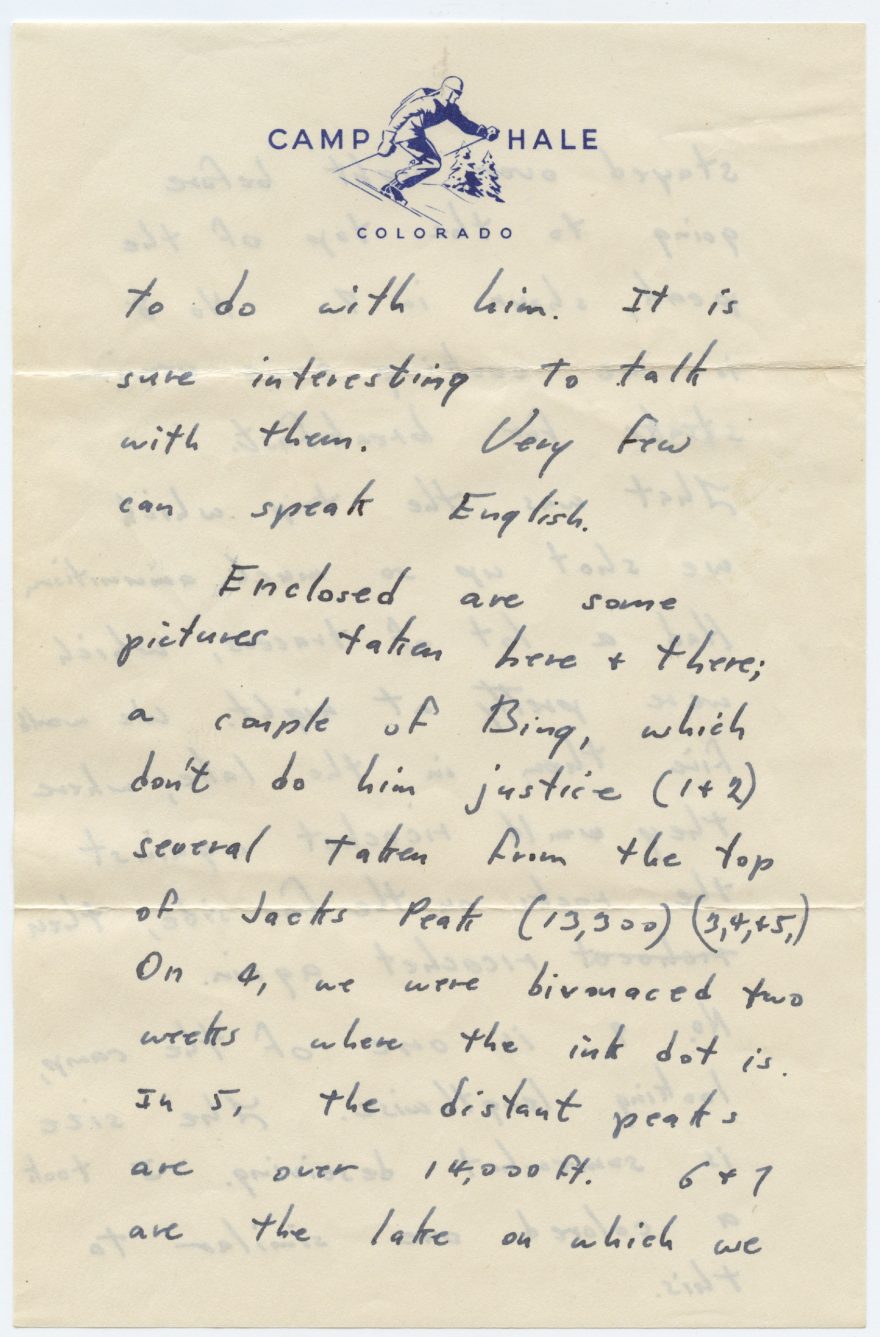 CAMP HALE
COLORADO
to do with him. It is
sure interesting to talk
with them. Very few
can speak English.
Enclosed are some
pictures taken here + there;
a couple of Bing, which
don't do him justice (1+2)
several taken from the top
of Jacks Peak (13,300) (3,4,+5,)
On 4, we were bivouaced two
weeks where the ink dot is.
In 5, the distant peaks
are over 14,000 ft. 6 + 7
are the lake on which we